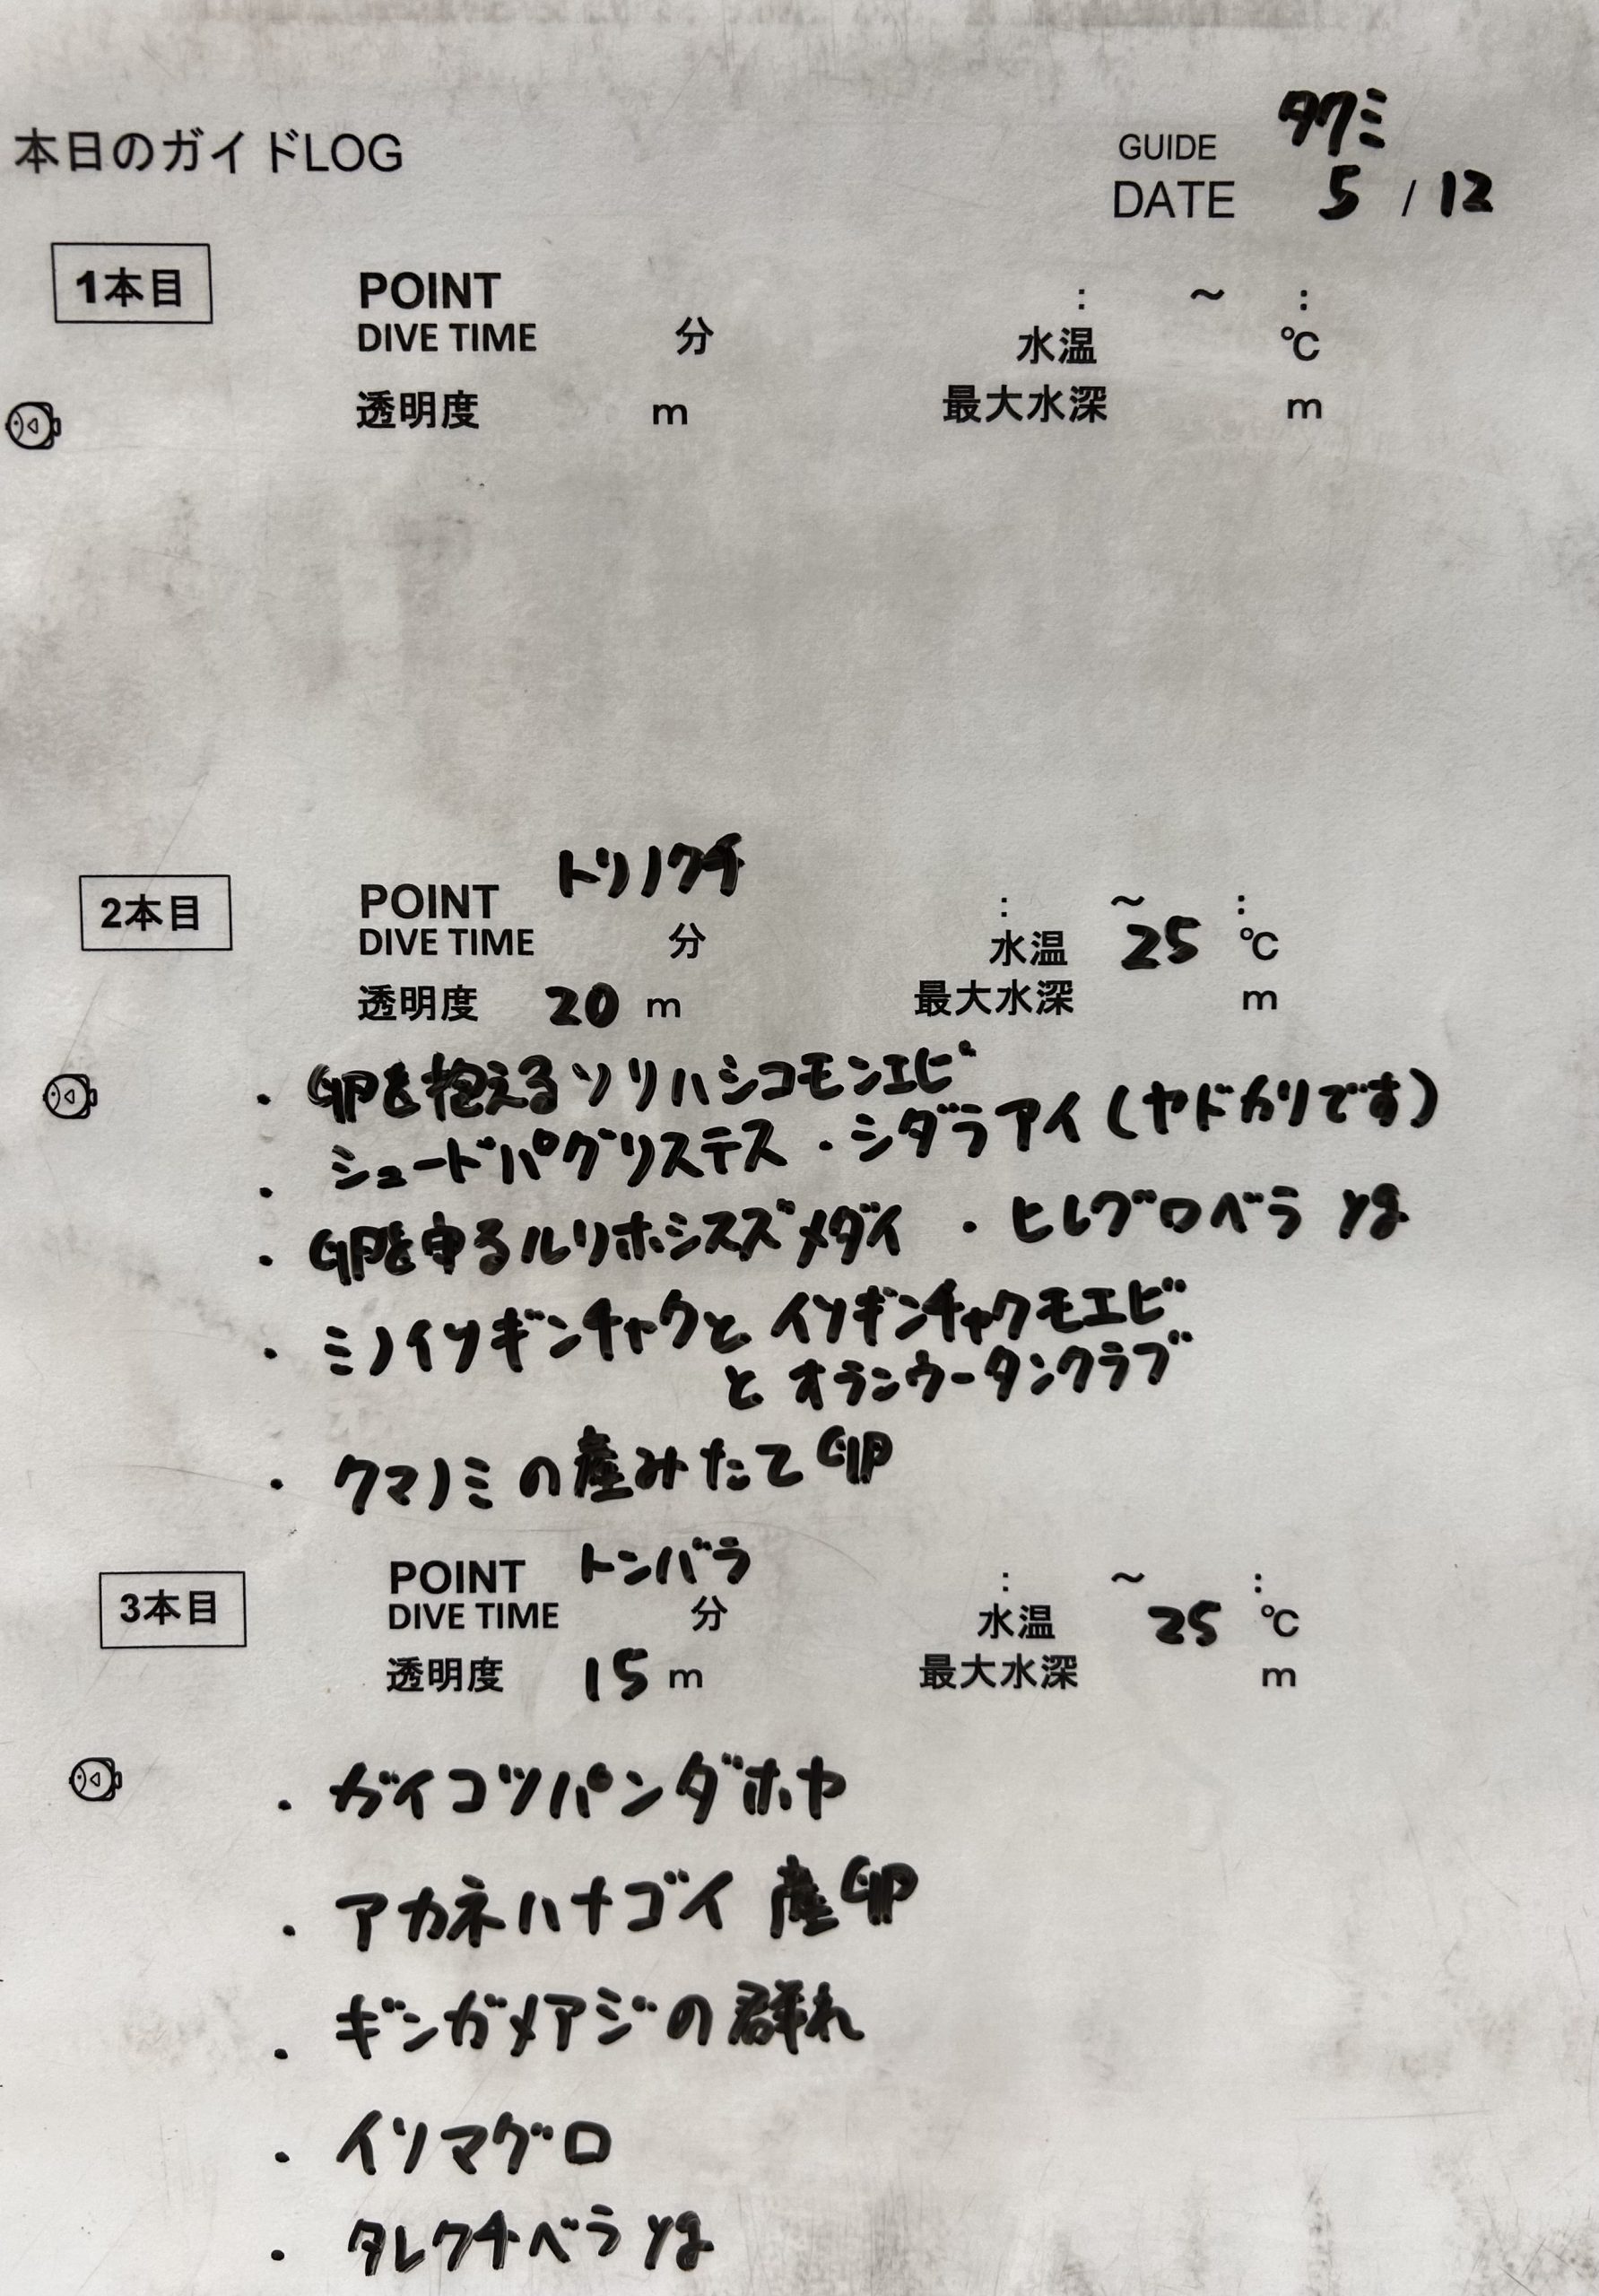 本日のガイドLOG
GUIDE タクミ
DATE 5 / 12
1本目 POINT : ～ :
DIVE TIME 分 水温 ℃
透明度 m 最大水深 m
2本目 POINT トリノクチ : ～ :
DIVE TIME 分 水温 25 ℃
透明度 20 m 最大水深 m
・卵を抱えるソリハシコモンエビ
・シュードパグリステス・シダラアイ(ヤドカリです)
・卵を守るルリホシスズメダイ ・ヒレグロベラ yg
・ミノイソギンチャクと イソギンチャクモエビ
と オランウータンクラブ
・クマノミの産みたて卵
3本目 POINT トンバラ : ～ :
DIVE TIME 分 水温 25 ℃
透明度 15 m 最大水深 m
・ガイコツパンダホヤ
・アカネハナゴイ 産卵
・ギンガメアジの群れ
・イソマグロ
・タレクチベラ yg